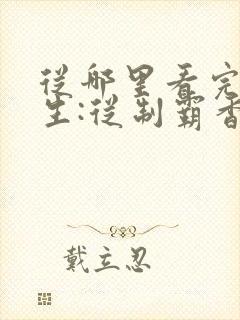 從那里看完
生:從制霸香
戴立忍